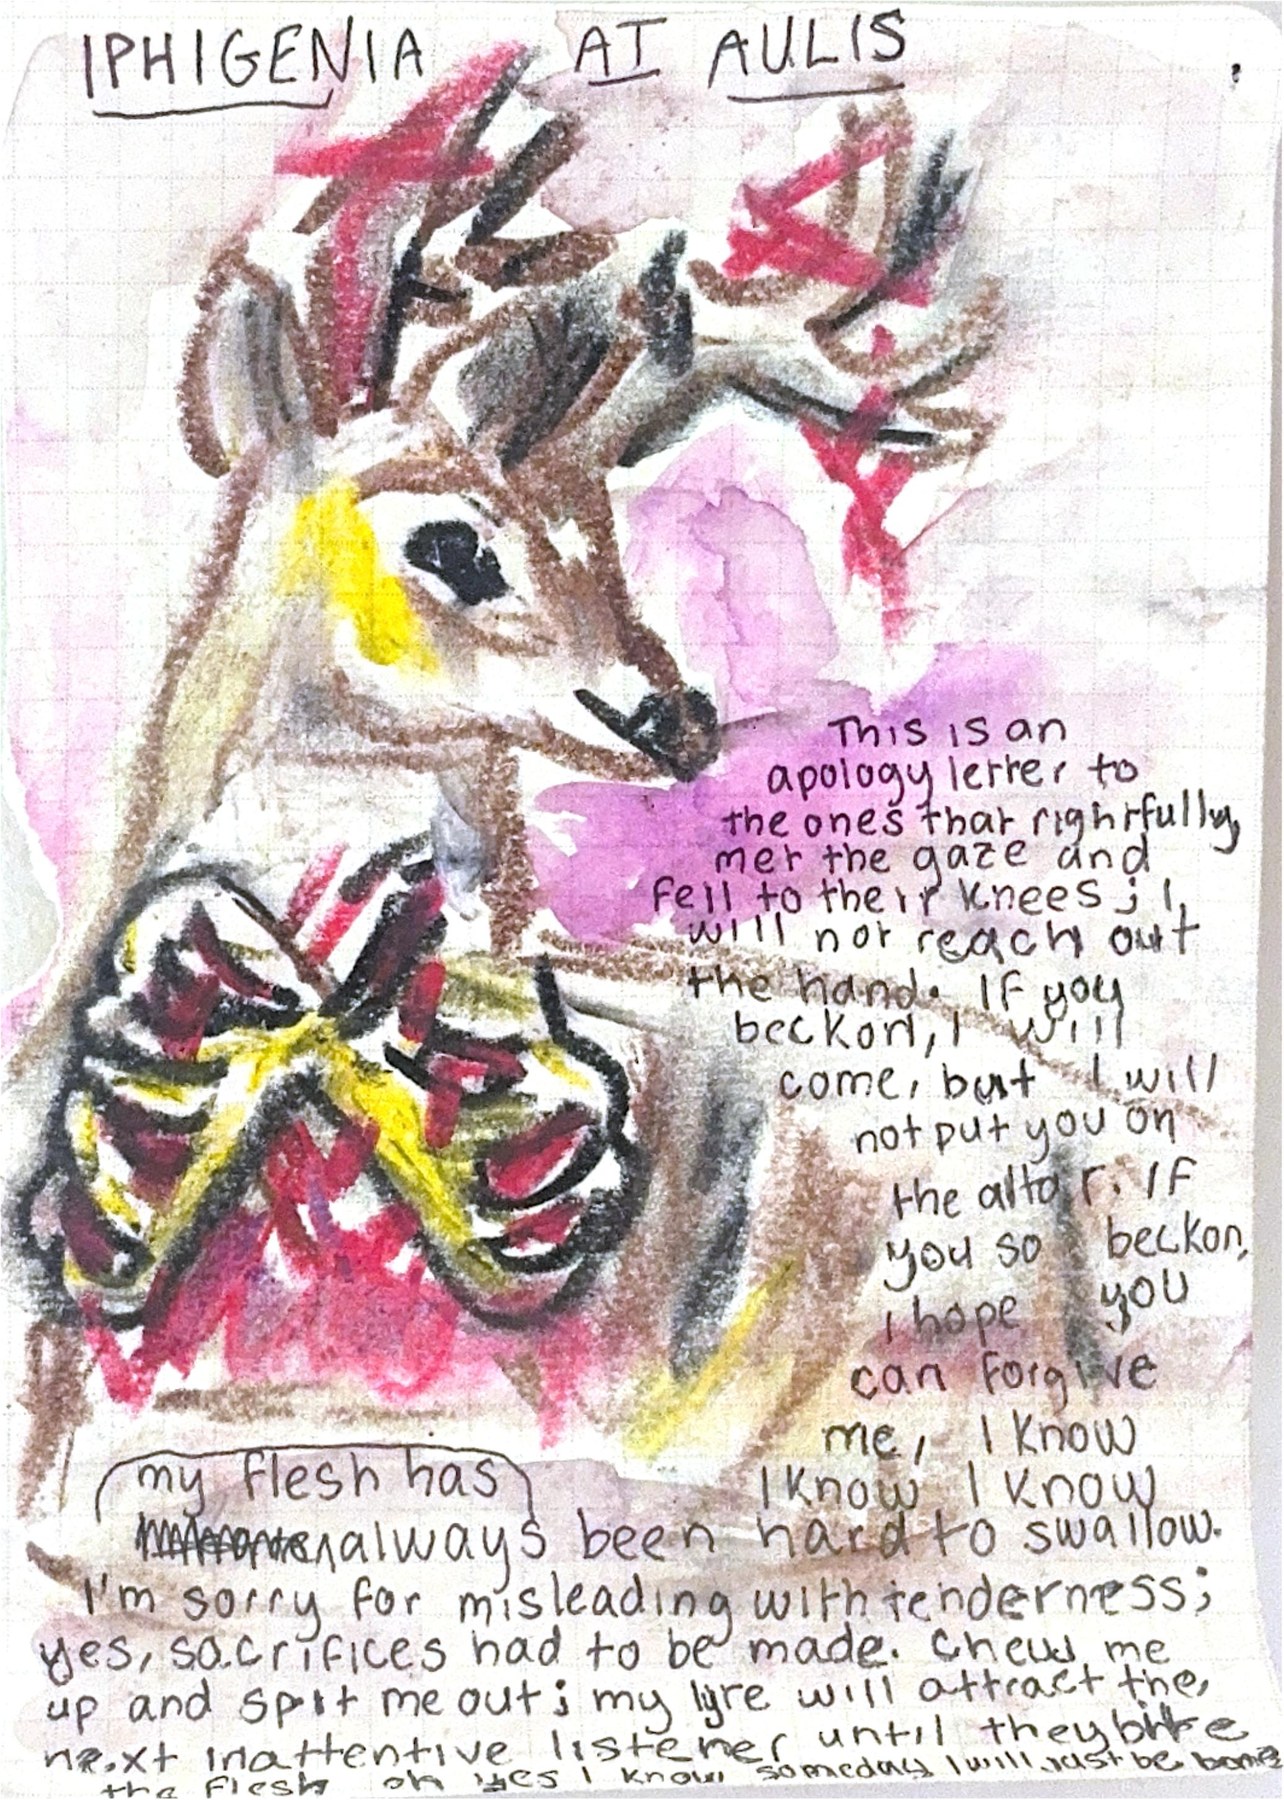 IPHIGENIA AT AULIS
This is an
apology letter to
the ones that rightfully
met the gaze and
fell to their knees; I
will not reach out
the hand. If you
beckon, I will
come, but I will
not put you on
the altar. If
you so beckon,
i hope you
can forgive
me, I know
I know I know
my flesh has
always been hard to swallow.
I'm sorry for misleading with tenderness;
yes, sacrifices had to be made. Chew me
up and spit me out; my lyre will attract the
next inattentive listener until they bite
the flesh oh yes I know someday I will just be bone